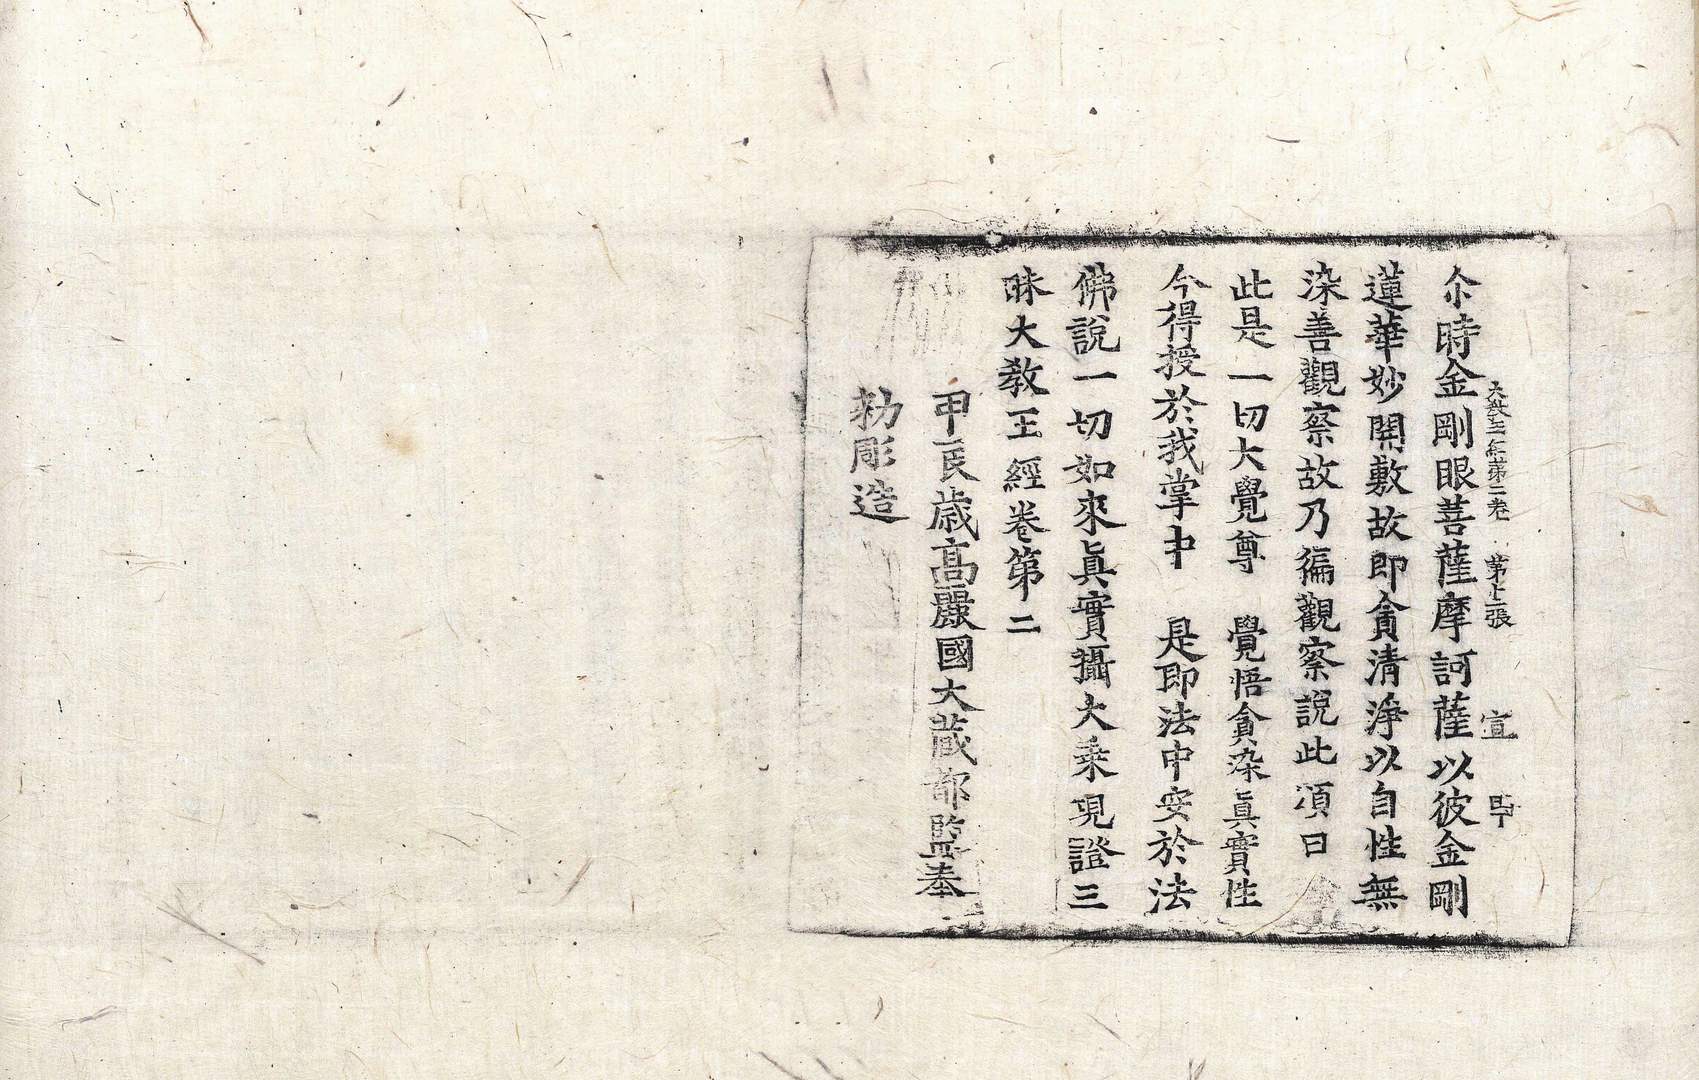 大教王經第二卷 第十二張 宣
尒時金剛眼菩薩摩訶薩以彼金剛
蓮華妙開敷故即貪清淨以自性無
染善觀察故乃徧觀察說此頌曰
此是一切大覺尊 覺悟貪染眞實性
今得授於我掌中 是即法中安於法
佛說一切如來眞實攝大乗現證三
昧大教王經卷第二
甲辰歳髙麗國大蔵都監奉
勑彫造